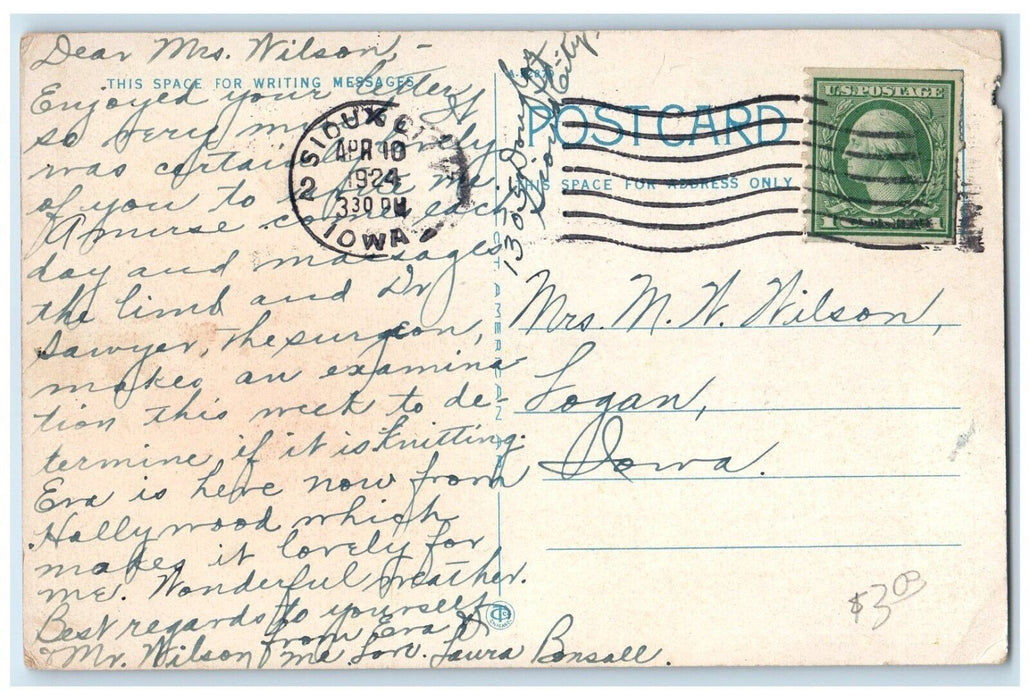 Dear Mrs. Wilson, -
THIS SPACE FOR WRITING MESSAGES
Enjoyed your letter
so very much
was certainly lovely
of you to write me.
A nurse comes each
day and massages
the limb and Dr
Sawyer, the surgeon,
makes an examina
tion this week to de-
termine if it is knitting.
Eva is here now from
Hollywood which
makes it lovely for
me. Wonderful weather.
Best regards to yourself
& Mr. Wilson from Eva &
me Lov. Laura Bonsall.
Sioux City.
SIOUX CITY
APR 10
1924
3 30 PM
IOWA
2
POST CARD
THIS SPACE FOR ADDRESS ONLY
U.S. POSTAGE
Mrs. M. W. Wilson,
Logan,
Iowa.
$3.00